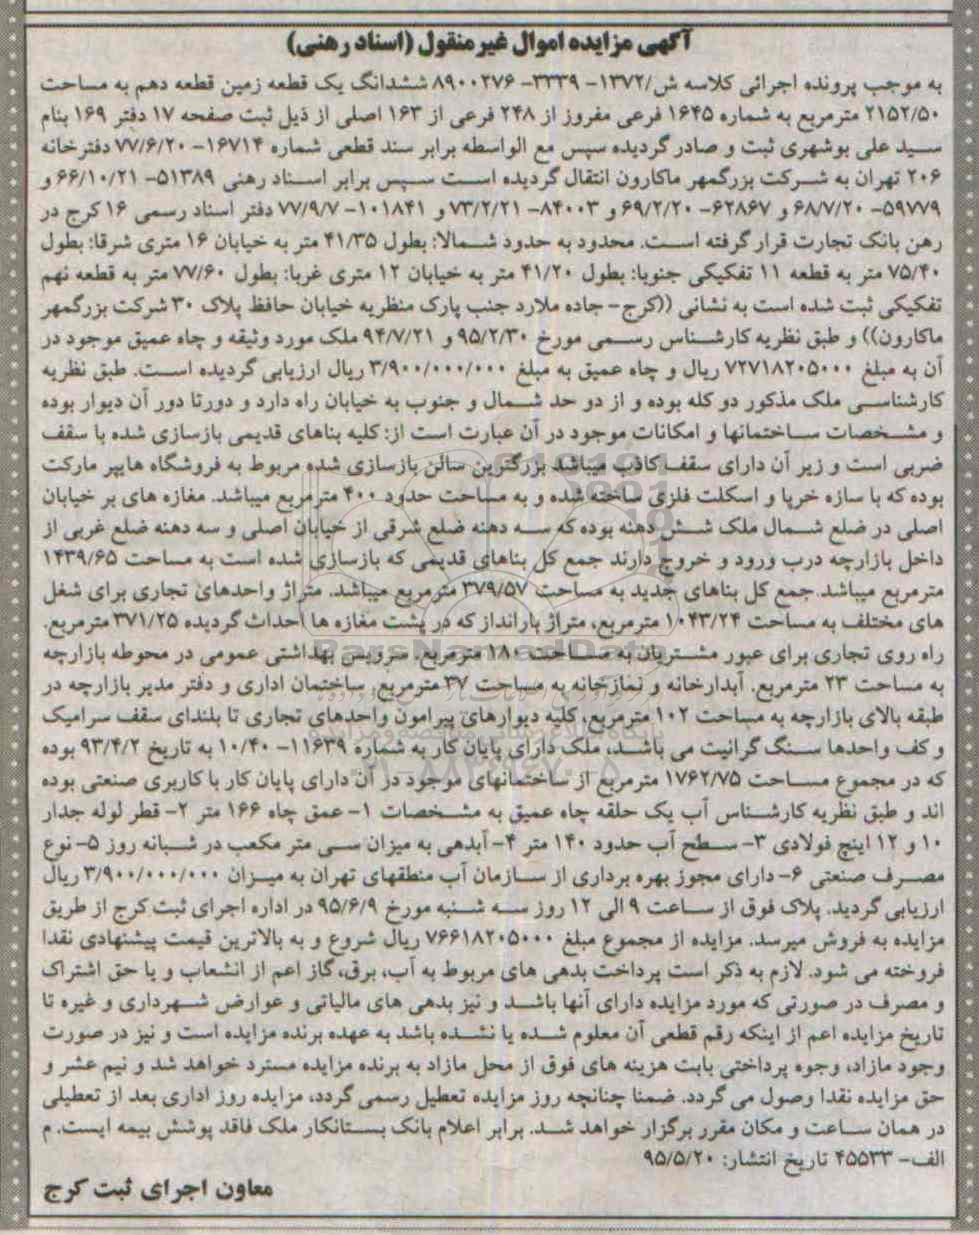 آگهی مزایده اموال غیرمنقول (اسناد رهنی)
به موجب پرونده اجرائی کلاسه ش/۱۳۷۲- ۳۳۳۹- ۸۹۰۰۲۷۶ ششدانگ یک قطعه زمین قطعه دهم به مساحت
۲۱۵۲/۵۰ مترمربع به شماره ۱۶۴۵ فرعی مفروز از ۲۴۸ فرعی از ۱۶۳ اصلی از ذیل ثبت صفحه ۱۷ دفتر ۱۶۹ بنام
سید علی بوشهری ثبت و صادر گردیده سپس مع الواسطه برابر سند قطعی شماره ۱۶۷۱۴- ۷۷/۶/۲۰ دفترخانه
۲۰۶ تهران به شرکت بزرگمهر ماکارون انتقال گردیده است سپس برابر اسناد رهنی ۵۱۳۸۹- ۶۶/۱۰/۲۱ و
۵۹۷۷۹- ۶۸/۷/۲۰ و ۶۲۸۶۷- ۶۹/۲/۲۰ و ۸۴۰۰۳- ۷۳/۲/۲۱ و ۱۰۱۸۴۱- ۷۷/۹/۷ دفتر اسناد رسمی ۱۶ کرج در
رهن بانک تجارت قرار گرفته است. محدود به حدود شمالا: بطول ۴۱/۳۵ متر به خیابان ۱۶ متری شرقا: بطول
۷۵/۴۰ متر به قطعه ۱۱ تفکیکی جنوبا: بطول ۴۱/۲۰ متر به خیابان ۱۲ متری غربا: بطول ۷۷/۶۰ متر به قطعه نهم
تفکیکی ثبت شده است به نشانی ((کرج- جاده ملارد جنب پارک منظریه خیابان حافظ پلاک ۳۰ شرکت بزرگمهر
ماکارون)) و طبق نظریه کارشناس رسمی مورخ ۹۵/۲/۳۰ و ۹۴/۷/۲۱ ملک مورد وثیقه و چاه عمیق موجود در
آن به مبلغ ۷۲۷۱۸۲۰۵۰۰۰ ریال و چاه عمیق به مبلغ ۳/۹۰۰/۰۰۰/۰۰۰ ریال ارزیابی گردیده است. طبق نظریه
کارشناسی ملک مذکور دو کله بوده و از دو حد شمال و جنوب به خیابان راه دارد و دورتا دور آن دیوار بوده
و مشخصات ساختمانها و امکانات موجود در آن عبارت است از: کلیه بناهای قدیمی بازسازی شده با سقف
ضربی است و زیر آن دارای سقف کاذب میباشد بزرگترین سالن بازسازی شده مربوط به فروشگاه هایپر مارکت
بوده که با سازه خرپا و اسکلت فلزی ساخته شده و به مساحت حدود ۴۰۰ مترمربع میباشد. مغازه های بر خیابان
اصلی در ضلع شمال ملک شش دهنه بوده که سه دهنه ضلع شرقی از خیابان اصلی و سه دهنه ضلع غربی از
داخل بازارچه درب ورود و خروج دارند جمع کل بناهای قدیمی که بازسازی شده است به مساحت ۱۴۳۹/۶۵
مترمربع میباشد.جمع کل بناهای جدید به مساحت ۳۷۹/۵۷ مترمربع میباشد. متراژ واحدهای تجاری برای شغل
های مختلف به مساحت ۱۰۴۳/۲۴ مترمربع، متراژ بارانداز که در پشت مغازه ها احداث گردیده ۳۷۱/۲۵ مترمربع.
راه روی تجاری برای عبور مشتریان به مساحت ۱۸۰ مترمربع. سرویس بهداشتی عمومی در محوطه بازارچه
به مساحت ۲۳ مترمربع. آبدارخانه و نمازخانه به مساحت ۳۷ مترمربع. ساختمان اداری و دفتر مدیر بازارچه در
طبقه بالای بازارچه به مساحت ۱۰۲ مترمربع، کلیه دیوارهای پیرامون واحدهای تجاری تا بلندای سقف سرامیک
و کف واحدها سنگ گرانیت می باشد، ملک دارای پایان کار به شماره ۱۱۶۳۹- ۱۰/۴۰ به تاریخ ۹۳/۴/۲ بوده
که در مجموع مساحت ۱۷۶۲/۷۵ مترمربع از ساختمانهای موجود در آن دارای پایان کار با کاربری صنعتی بوده
اند و طبق نظریه کارشناس آب یک حلقه چاه عمیق به مشخصات ۱- عمق چاه ۱۶۶ متر ۲- قطر لوله جدار
۱۰ و ۱۲ اینچ فولادی ۳- سطح آب حدود ۱۴۰ متر ۴- آبدهی به میزان سی متر مکعب در شبانه روز ۵- نوع
مصرف صنعتی ۶- دارای مجوز بهره برداری از سازمان آب منطقهای تهران به میزان ۳/۹۰۰/۰۰۰/۰۰۰ ریال
ارزیابی گردید. پلاک فوق از ساعت ۹ الی ۱۲ روز سه شنبه مورخ ۹۵/۶/۹ در اداره اجرای ثبت کرج از طریق
مزایده به فروش میرسد. مزایده از مجموع مبلغ ۷۶۶۱۸۲۰۵۰۰۰ ریال شروع و به بالاترین قیمت پیشنهادی نقدا
فروخته می شود. لازم به ذکر است پرداخت بدهی های مربوط به آب، برق، گاز اعم از انشعاب و یا حق اشتراک
و مصرف در صورتی که مورد مزایده دارای آنها باشد و نیز بدهی های مالیاتی و عوارض شهرداری و غیره تا
تاریخ مزایده اعم از اینکه رقم قطعی آن معلوم شده یا نشده باشد به عهده برنده مزایده است و نیز در صورت
وجود مازاد، وجوه پرداختی بابت هزینه های فوق از محل مازاد به برنده مزایده مسترد خواهد شد و نیم عشر و
حق مزایده نقدا وصول می گردد. ضمنا چنانچه روز مزایده تعطیل رسمی گردد، مزایده روز اداری بعد از تعطیلی
در همان ساعت و مکان مقرر برگزار خواهد شد. برابر اعلام بانک بستانکار ملک فاقد پوشش بیمه ایست. م
الف- ۴۵۵۳۳ تاریخ انتشار: ۹۵/۵/۲۰
معاون اجرای ثبت کرج
ParsNamadData